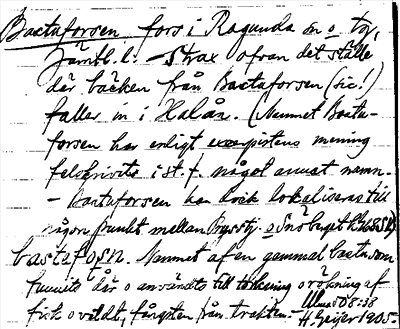 Bastaforsen fors i Ragunda sn o tg,
Jämtl. l. - Strax ofvan det ställe
där bäcken från Bastaforsen (sic!)
faller in i Halån. (Namnet Basta-
forsen har enligt excerpistens mening
felskrivits i st. f. något annat namn.
- Bastaforsen har dock lokaliserats till
någon punkt mellan o Snöberget
bastafošn. Namnet af en gammal basta som
funnits där o användts till torkning o rökning af
fisk o vildt, fångsten från trakten.
H. Geijer 1905.